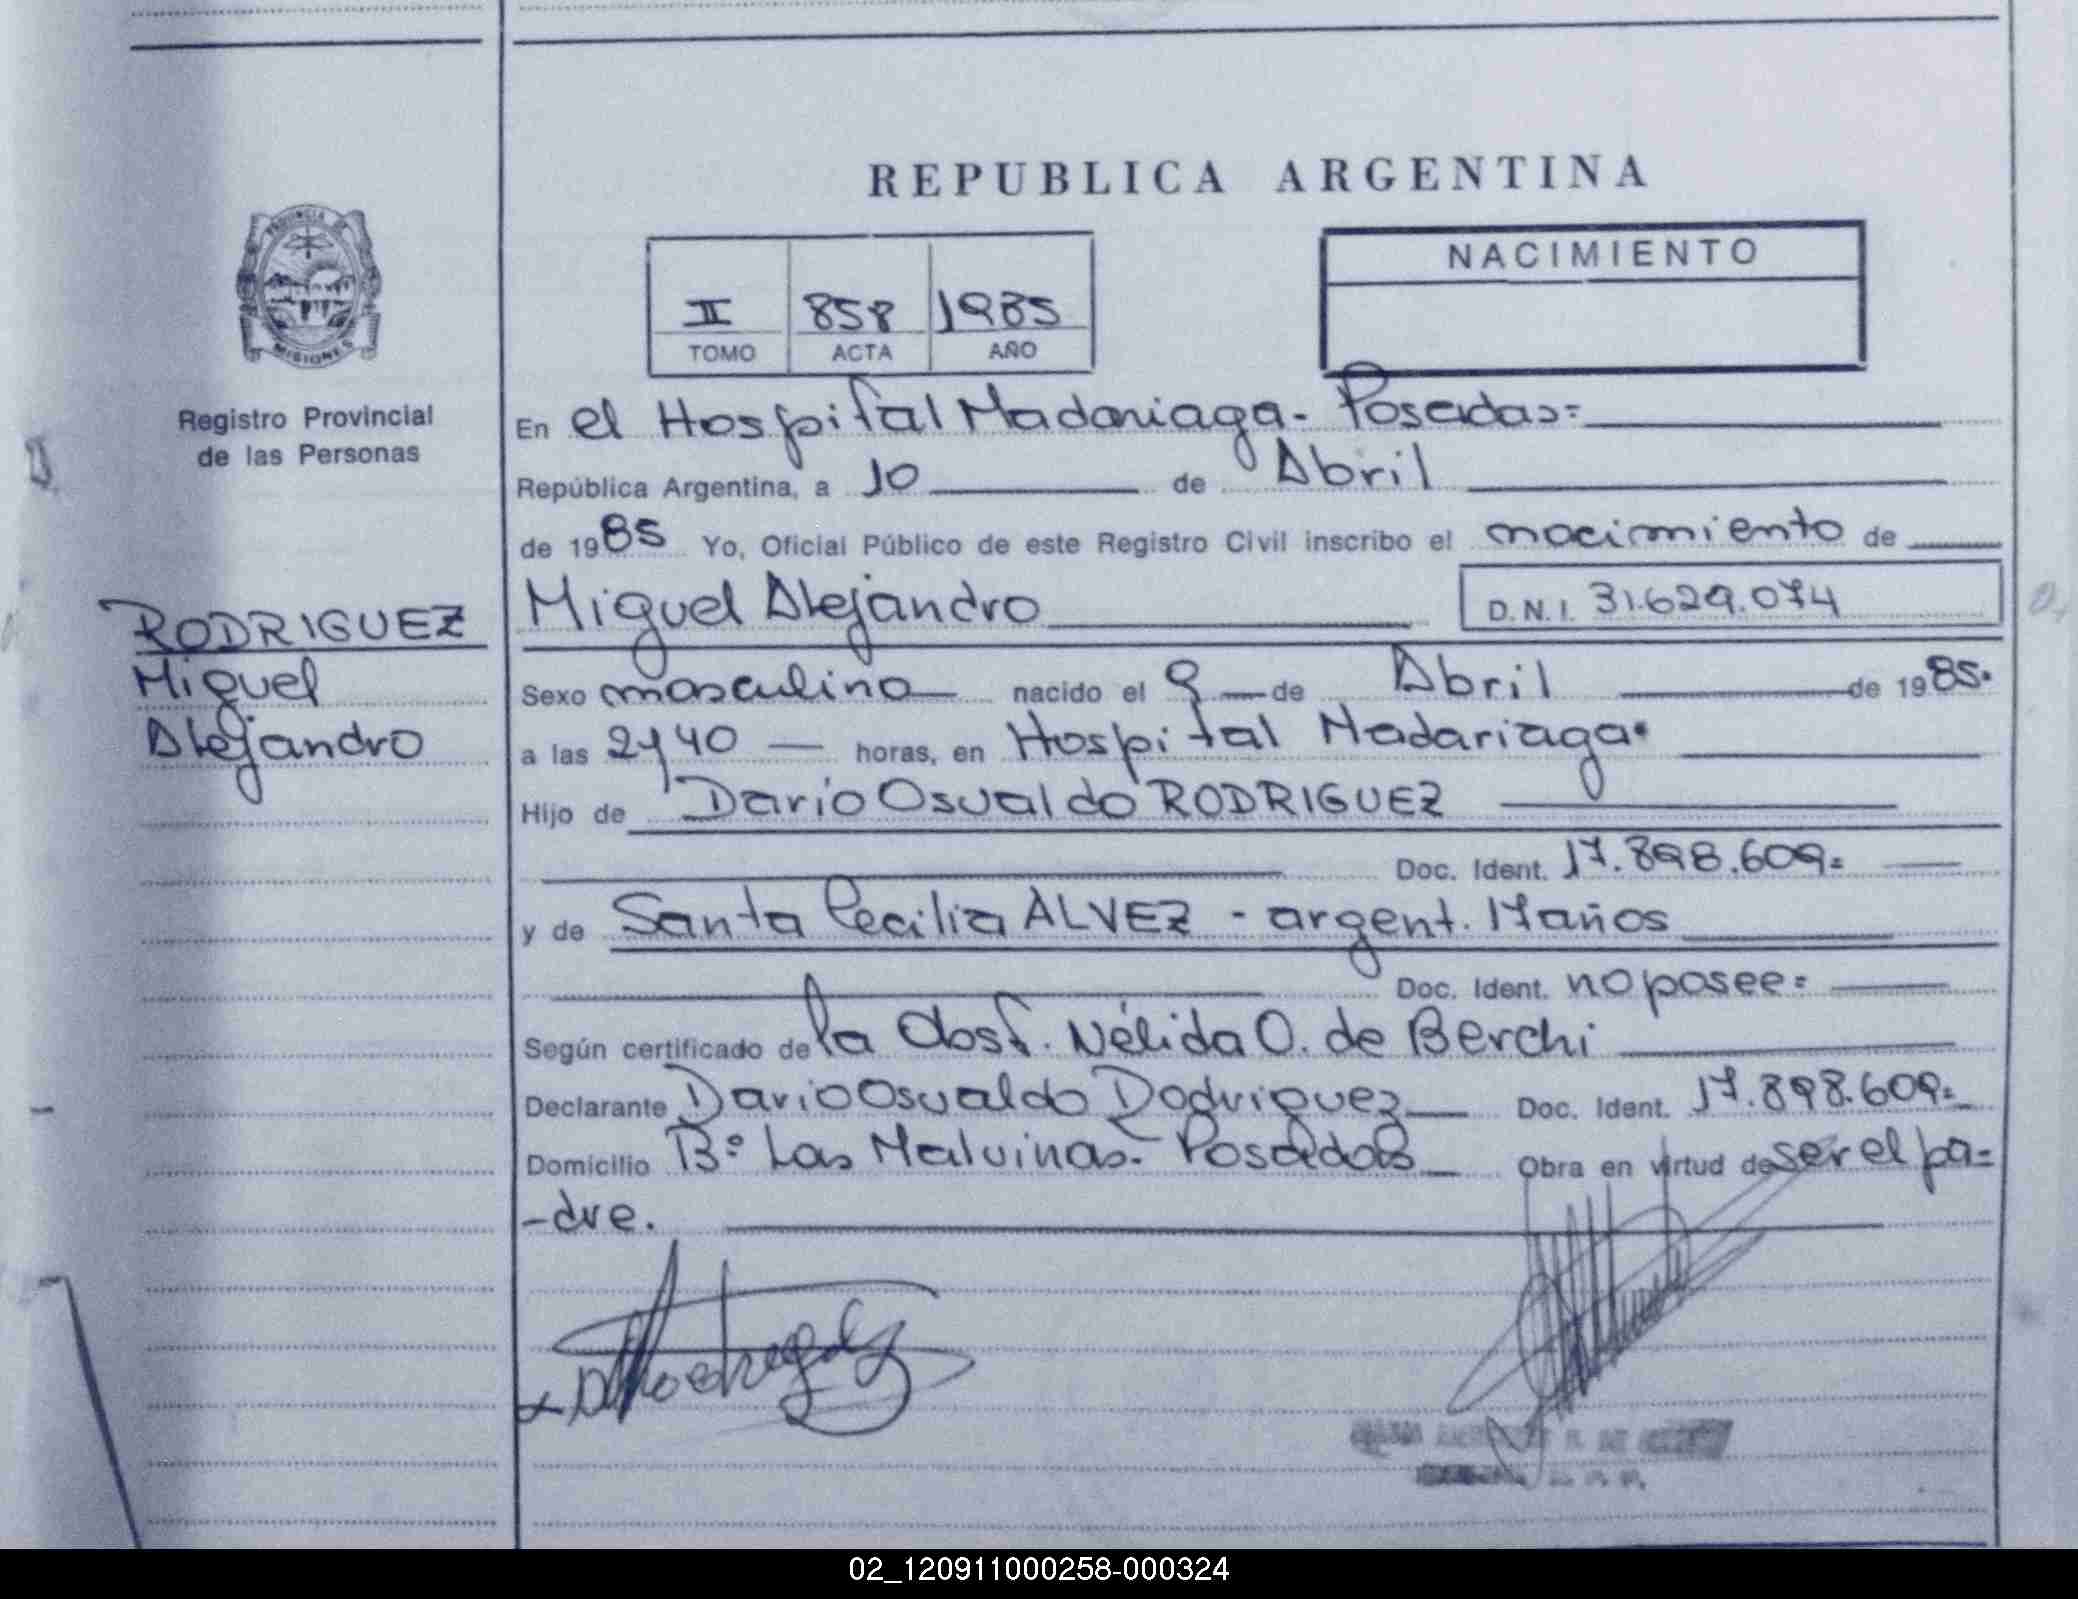 REPUBLICA ARGENTINA
PROVINCIA DE
MISIONES
Registro Provincial
de las Personas
RODRIGUEZ
Miguel
Alejandro
II 858 1985
TOMO ACTA AÑO
NACIMIENTO
En el Hospital Madariaga - Posadas=
República Argentina, a 10 de Abril
de 1985 Yo, Oficial Público de este Registro Civil inscribo el nacimiento de
Miguel Alejandro D.N.I. 31.629.074
Sexo masculino nacido el 9 de Abril de 1985.
a las 2140 horas, en Hospital Madariaga.
Hijo de Dario Osvaldo RODRIGUEZ
Doc. Ident. 17.898.609=
y de Santa Cecilia ALVEZ - argent. 17años
Doc. Ident. no posee=
Según certificado de la Obst. Nélida O. de Berchi
Declarante Dario Osvaldo Rodriguez Doc. Ident. 17.898.609=
Domicilio B° Las Malvinas - Posadas Obra en virtud de ser el pa=
-dre.
02_120911000258-000324